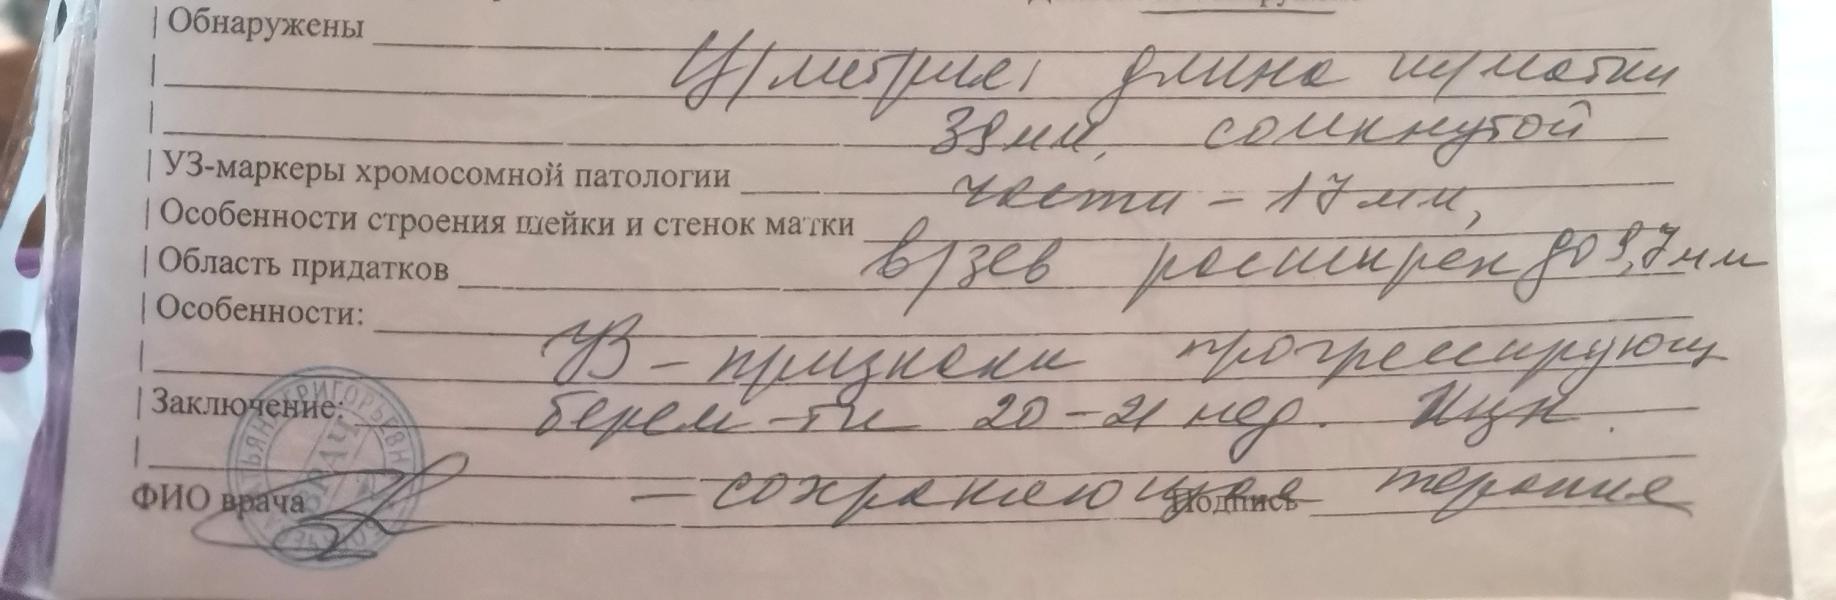 Обнаружены
Ц/метрия: длина ш/матки
39мм, сомкнутой
УЗ-маркеры хромосомной патологии
части - 17 мм,
Особенности строения шейки и стенок матки
в/зев расширен до 9,7 мм
Область придатков
Особенности:
УЗ - признаки прогрессирующ
Заключение:
берем-ти 20-21 нед. ИЦН.
- сохраняющая терапия
ФИО врача Подпись
ВРАЧ